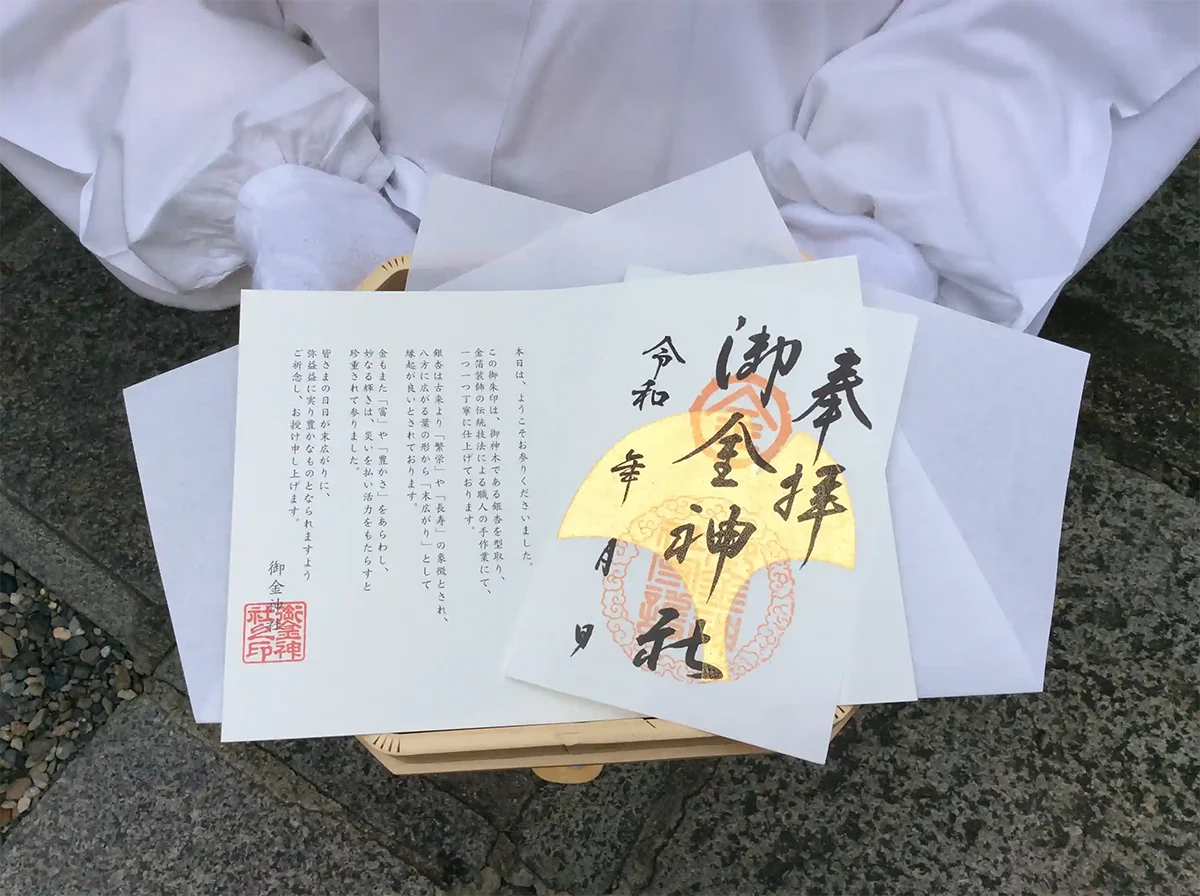 奉拝
御金神社
令和 年 月 日
本日は、ようこそお参りくださいました。
この御朱印は、御神木である銀杏を型取り、
金箔装飾の伝統技法による職人の手作業にて、
一つ一つ丁寧に仕上げております。
銀杏は古来より「繁栄」や「長寿」の象徴とされ、
八方に広がる葉の形から「末広がり」として
縁起が良いとされております。
金もまた「富」や「豊かさ」をあらわし、
妙なる輝きは、災いを払い活力をもたらすと
珍重されて参りました。
皆さまの日日が末広がりに、
弥益益に実り豊かなものとなられますよう
ご祈念し、お授け申し上げます。
御金神社
御金神
社之印